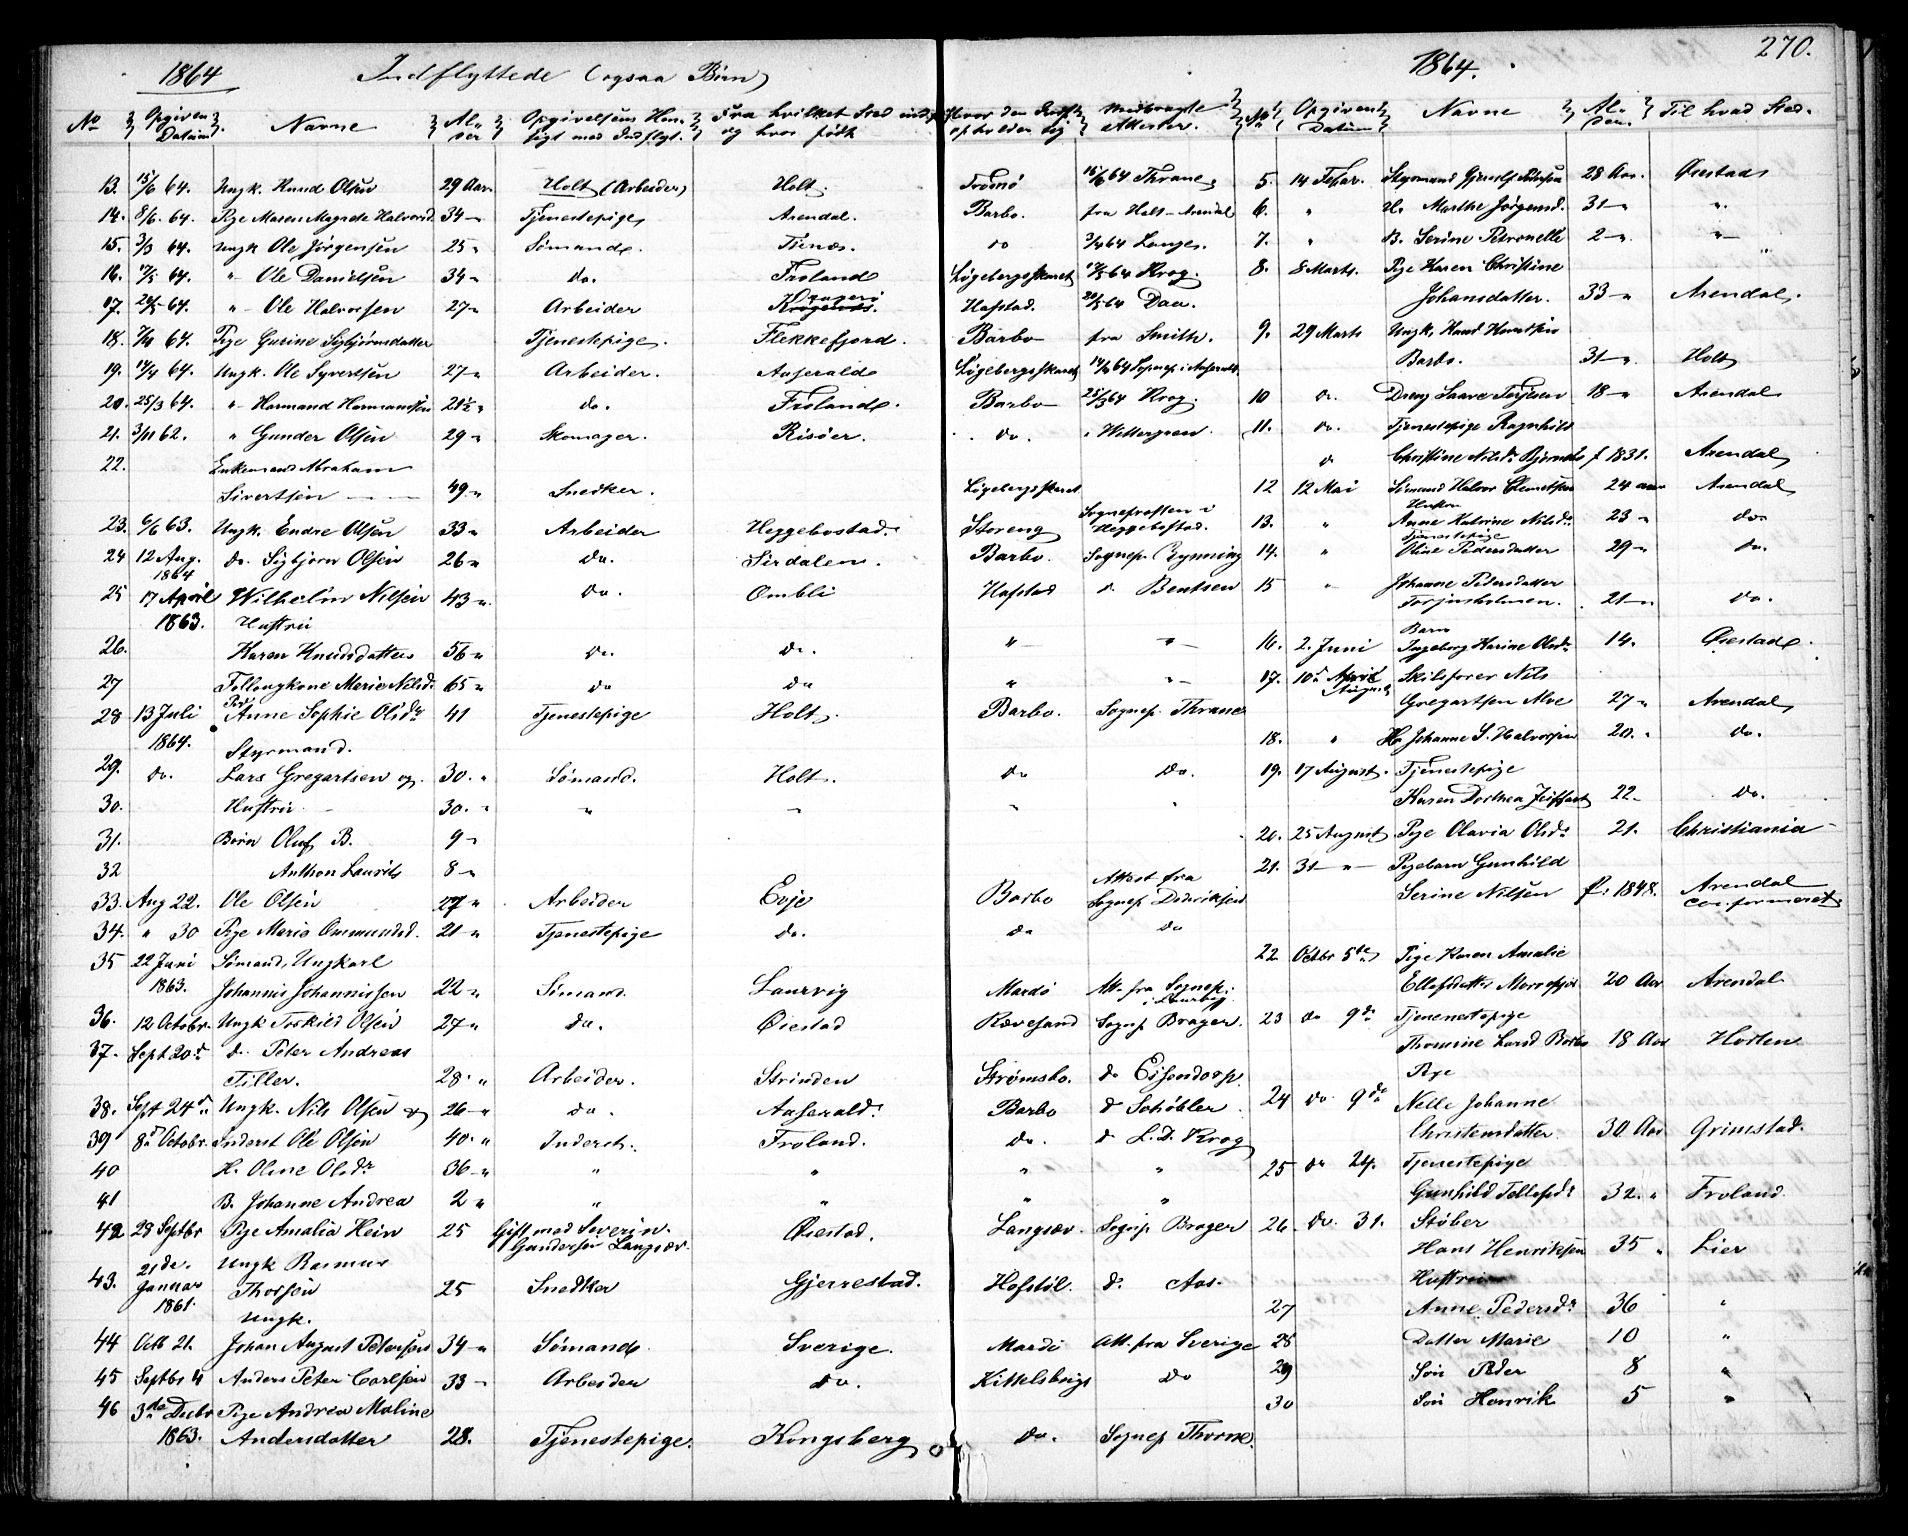 270.
1864 Indflyttede (ogsaa Børn) 1864.
No Opgiven Datum Navne Alder Opgivelsens Hensigt med Indflytt. Fra hvilket Sted indfl. og hvor født Hvor den Indfl. opholder sig Medbragte Attester. No Opgivent Datum Navne Alder. Til hvad Sted.
13. 15/6 64. Ungk. Knud Olsen 29 Aar Holt (Arbeider) Holt. Tromø 15/6 64 Thrane.
14. 8/6. 64. Pige Maren Magrete Halvorsd. 34 Tjenestepige Arendal. Barbo. fra Holt - Arendal
15. 3/3 64. Ungk Ole Jørgensen 25 Sømand. do Langes.
16. 64. " Ole Danielsen 34 do. Froland Løgebergsskaret 64 Krog.
17. 64. " Ole Halvorsen 27 Arbeider Hafstad. 64 Daa.
18. 64. Pige Gurine Sigbjørnsdatter Tjenestepige. Flekkefjord. Barbo fra Smith.
19. 64. Ungk. Ole Syvertsen 27 Arbeider. Aaserald Løgebergsskaret 64 Sognep. i Aaserald.
20. 25/3 64. " Hormand Hormandsen 21½ do. Froland. Barbo 25/3 64 Krog.
21. 3/11 62. " Gunder Olsen 29 Skomager. Risøer. do. " Wettergreen.
22. Enkemand Abraham
Sivertsen 49 Snedker. Løgebergsskaret
23. 6/6 63. Ungk. Endre Olsen 33 Arbeider Heggebostad. Storeng Sognepresten i Heggebostad.
24 12 Aug. 1864 do. Sigbjørn Olsen 26 do. Sirdalen. Barbo. Sognep. Rynning
25 17 April 1863. Wilhelm Nilsen 43 do. Ombli Hafstad do. Bentsen
Hustru
26. Karen Knudsdatter 56 do. do. " "
27 Follougkone Marie Nilsd. 65 do do " "
28 13 Juli 1864. Pige Anne Sophie Olsdr 41 Tjenestepige Holt. Barbo. Sognep. Thrane
Styrmand.
29. do. Lars Gregartsen og 30. " Sømand. Holt. do do.
30. Hustru 30. " " " " "
31. Børn Oluf B. 9
32 Anthon Laurits 8
33. Aug 22. Ole Olsen 27 Arbeider Evje Barbo Attest fra Sognep. Dideriksen
34. " 30 Pige Marie Ommundsd. 21 Tjenestepige do. do do
35 22 Juni 1863. Sømand, Ungkarl
Johannis Johannissen 22 Sømand. Laurvig Mardö Att. fra Sognep. i Laurvig.
36. 12 Octobr. Ungk Torkild Olsen 27 do. Øiestad Rævesand Sognep Brager.
37. Sept 20d do. Peter Andreas
Tiller. 28. " Arbeider. Strinden Strømsbo. do Eisendorp.
38. Sept 24d Ungk. Nils Olsen 26 do. Aaserald. Barbo do Schöbler
39 8d Octobr. Inderst Ole Olsen 40. " Inderst. Froland. do. do L. D. Krog
40 H. Oline Olsdr 36 " " " "
41 B. Johanne Andrea 2 " " " "
42 28 Septbr Pige Amalia Hein 25 Gift med Severin Gundersen Langsæv. Øiestad. Langsæv. Sognep Brager
43. 21de Januar 1861. Ungk Rasmus
Thorsen 25 Snedker Gjerrestad. Hofstöl. do. Aas.
Ungk.
44 Octb 21. Johan August Petersen 34 Sømand. Sverige. Mardö Att. fra Sverige
45 Septbr 4 Anders Peter Carlsen 33 Arbeider do. Kittelsbugt Do
46 3de Decbr 1863. Pige Andrea Maline
Andersdatter 28. Tjenestepige. Kongsberg do. Sognep Thorne.
5. 14 Febr. Styrmand 28 Aar. Øiestad
6. " H. Marthe Jørgensd. 31 "
7. " B. Serine Petronelle 2 "
8. 8 Marts. Pige Karen Christine "
Johansdatter. 33 Arendal.
9. 29 Marts Ungk. Knud Knudsen
Barbo. 31 Holt
10 do. Dreng Saave Terjesen 18 Arendal
11. do. Tjenestepige Ragnhild
do Christine Nilsdr f 1831. Arendal
12 12 Mai Sømand Halvor Clemetsen 24 aar Arendal
13. " Hustru Anne Katrine Nilsdr 23 do
14. " Tjenestepige Oline Pedersdatter 29 do.
15 " Johanne Pedersdatter
Torjusholmen. 21 do.
16. 2. Juni Barn Ingeborg Karine Olsdr 14. Øiestad.
17. 10de April August Skibsfører Nils
Gregartsen Alve 27 Arendal
18. " H. Johanne S. Halvorsen 20. " do.
19. 17 August. Tjenestepige
Karen Dorthea 22 do.
20. 25 August Pige Olavia Olsdr 21. Christiania
21. 31 " Pigebarn Gunhild
Serine Nilsen f. 1848. Arendal confirmeret
22 Octbr 5te Pige Karen Amalie
Ellefsdatter 20 Aar Arendal
23 do 9de Tjenenestepige
Thomine Larsd Barbo 18 Aar Horten
Pige
24 do. 9de Nelle Johanne
Christensdatter. 30 Aar Grimstad.
25 do 24. Tjenestepige
Gunhild Tellefsdr 32. " Froland.
26. do. 31. Støber
Hans Henriksen 35 " Lier
Hustru
27 Anne Pedersdr 36 "
28 Datter Marie 10 "
29 Søn Peder 8 "
30 Søn Henrik 5 "